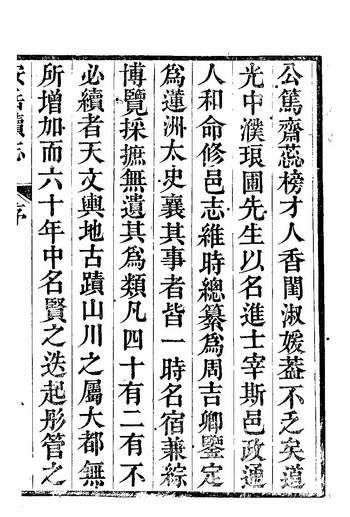 公篤齋蕊榜才人香閨淑媛葢不乏矣道
光中濮琅圃先生以名進士宰斯邑政通
人和命修邑志維時總纂爲周吉卿鑒定
爲蓮洲太史襄其事者皆一時名宿兼綜
博覽採摭無遺其爲類凡四十有二有不
必續者天文輿地古蹟山川之屬大都無
所增加而六十年中名賢之迭起彤管之
安岳續志
序